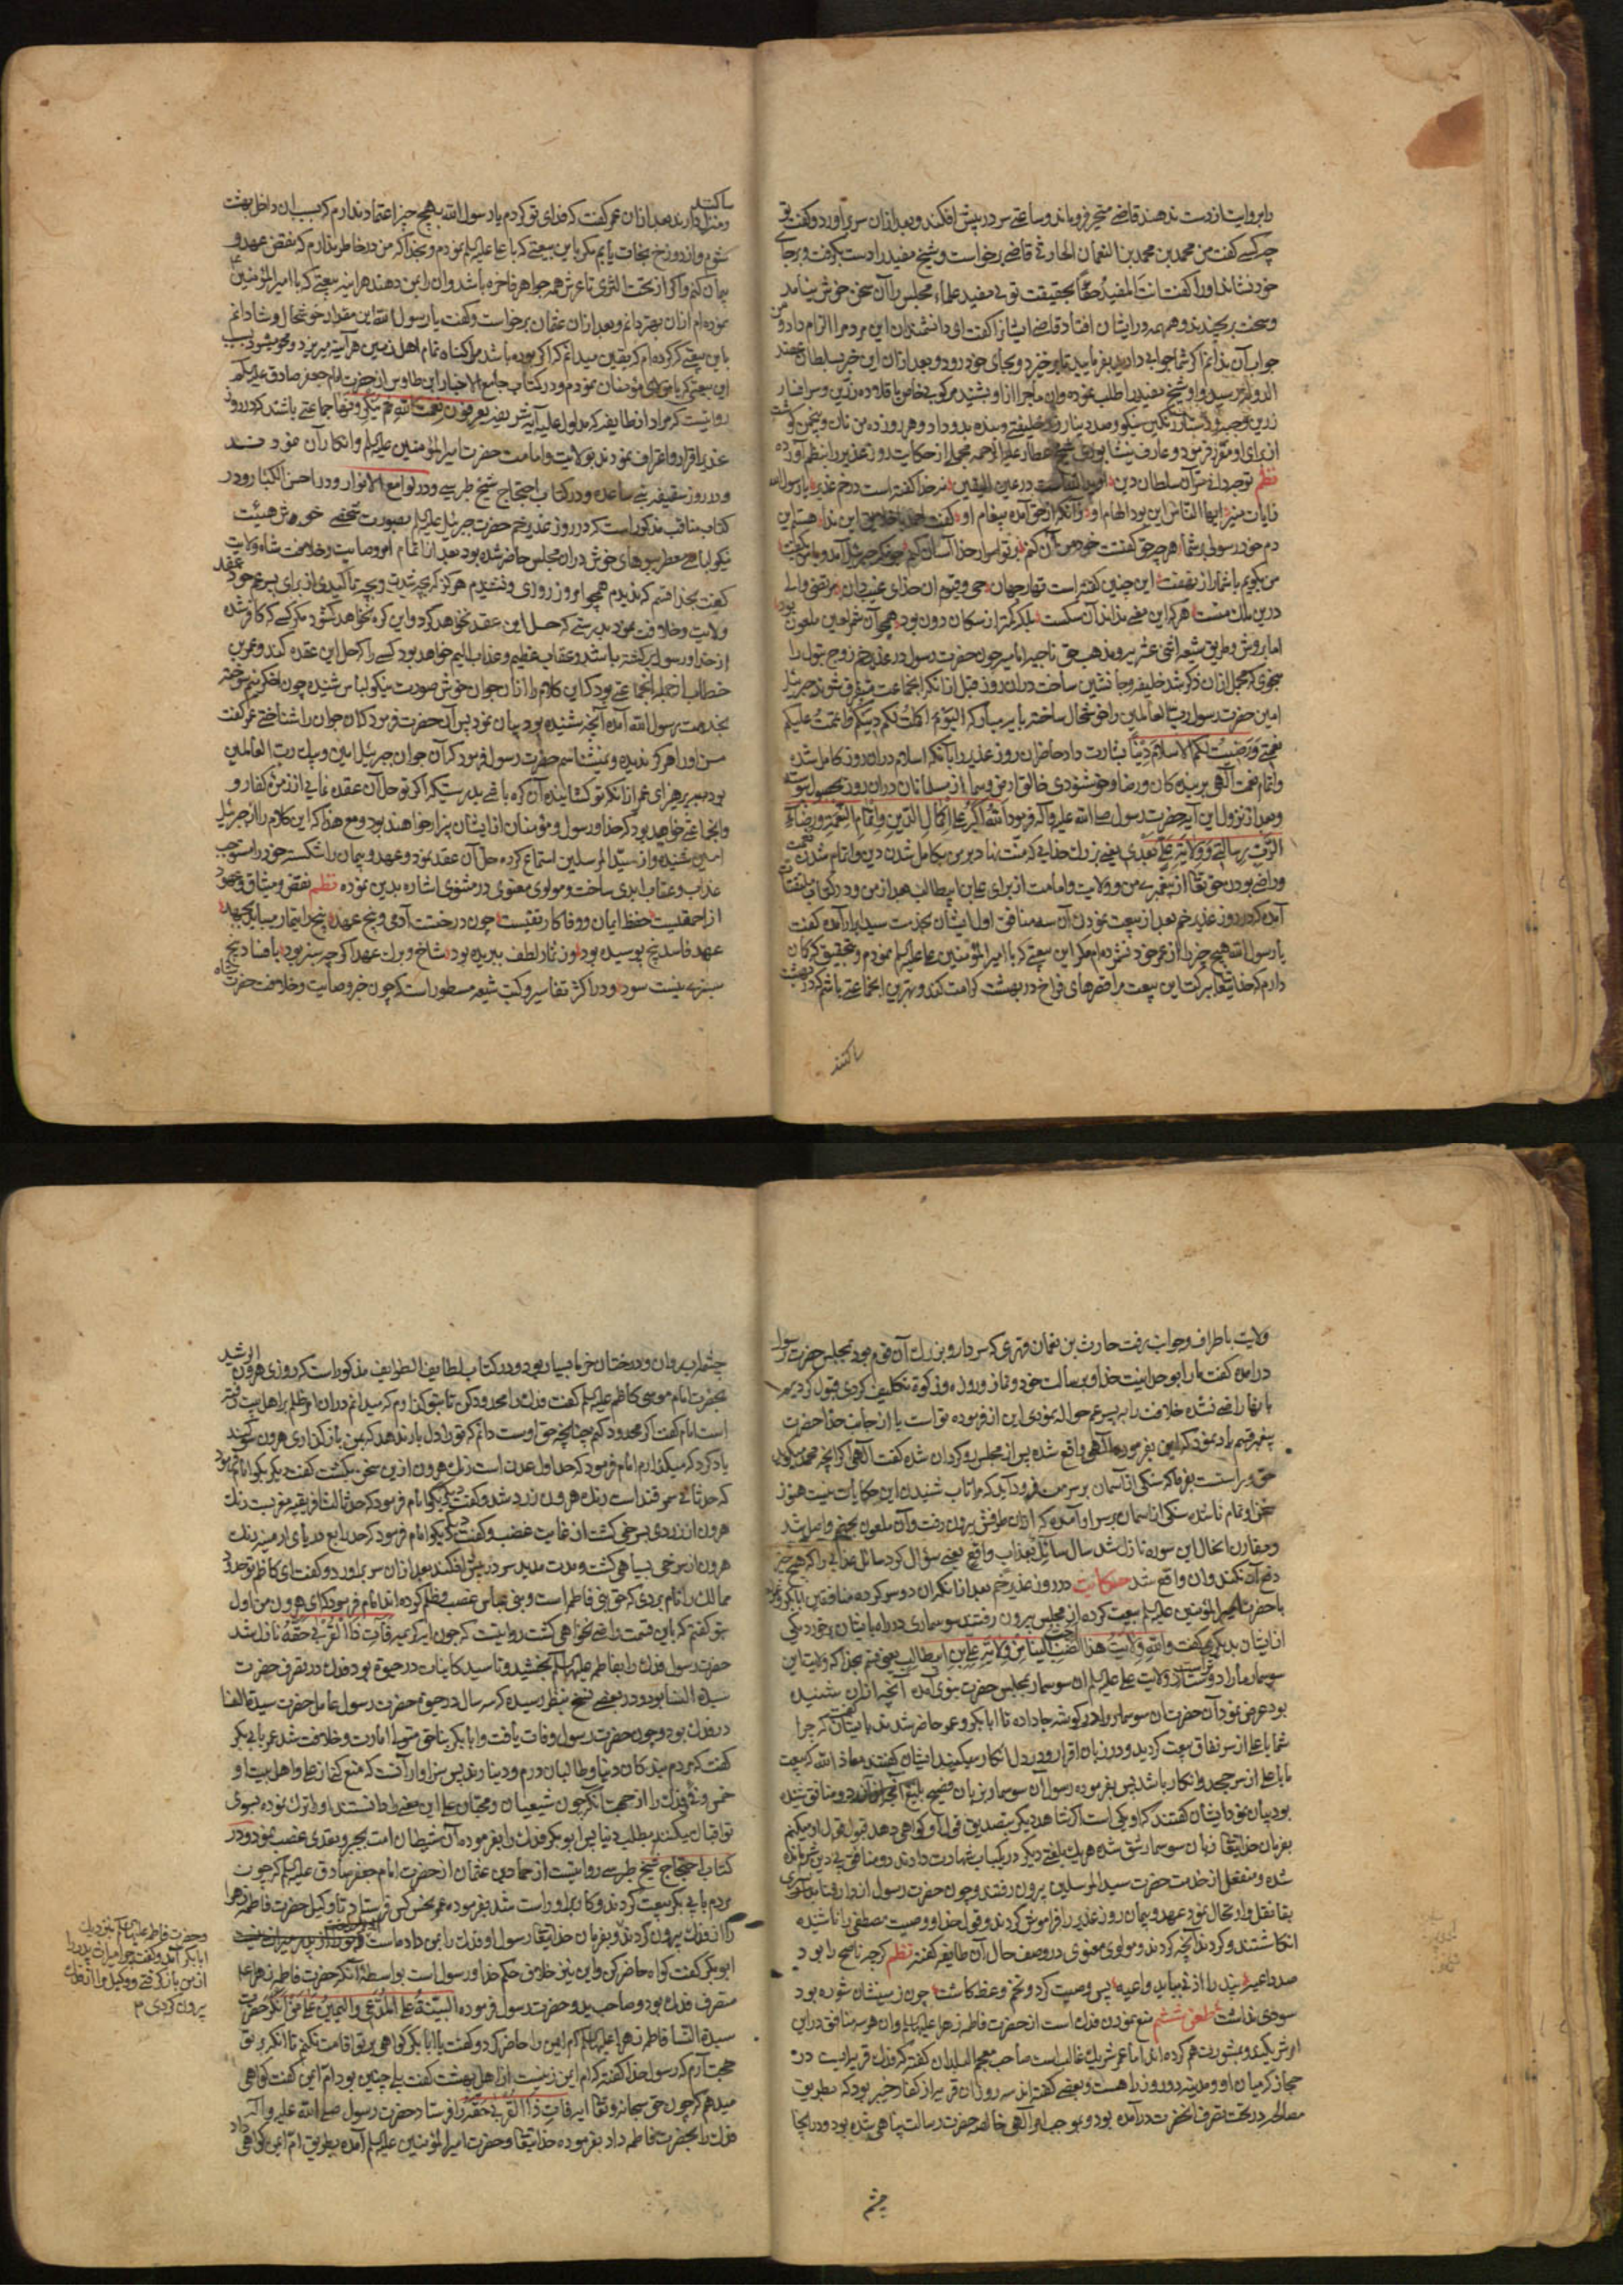 دابروایت از دست ندهند قاضی متحیر فرو ماند و ساعتی سر در پیش افکند و بعد ازان سر برآورد و گفت تو
چه کسی گفت من محمد بن محمد بن النعمان الحارثی قاضی برخواست و شیخ مفید را دست بگرفت و بر جای
خود نشاند و او را گفت انت المفید حقا بحقیقت توئی مفید علماء مجلس را آن سخن خوش نیامد
و سخت برنجیدند و همهمه در ایشان افتاد قاضی ایشانرا گفت ای دانشمندان این مرد مرا الزام داد و من
جواب آن ندانم اگر شما جوابی دارید بفرمایید تا برخیزد و بجای خود رود و بعد ازان این خبر بسلطان عضد
الدوله رسید و او شیخ مفید را طلب نموده و آن ماجرا ازو بشنید مرکوبی خاص با قلاده زرین و سرافسار
زرین و جبه و دستار نیکو و صد دینار خلیفتی و بنده بدو داد و هر روز ده من نان و پنج من گوشت
از برای او مقرر فرمود و عارف نیشابوری شیخ عطار علیه الرحمه مجملی از حکایت روز غدیر را بنظم آورده
نظم
دم خود رسول
من بگویم با شما راز نهفت این چنین گفته است قهار جهان حی و قیوم آن خدای غیب دان مرتضی والی
درین ملک منست هر که این معنی نداند آن سگست بلکه کمتر از سگان دون بود همچو آن شمر لعین ملعون بود
اما بروش و طریق شیعه اثنی عشریه و مذهب حق ناجیه امامیه چون حضرت رسول در غدیر خم زوج بتول را
بنحوی که مجملی ازان ذکر شد خلیفه و جانشین ساخت دران روز قبل از آنکه آنجماعت متفرق شوند جبرئیل
امین حضرت رسول رب العالمین را خوشحال ساخته بآیه مبارکه الیوم اکملت لکم دینکم و اتممت علیکم
نعمتی و رضیت لکم الاسلام دینا بشارت داد حاضران روز غدیر را بآنکه اسلام دران روز کامل شد
و اتمام نعمت الهی بر بندگان و رضا و خوشنودی خالق ارض و سما از مسلمانان دران روز بحصول پیوست
و بعد از نزول این آیه حضرت رسول صلی الله علیه و آله فرمود الله اکبر علی اکمال الدین و اتمام النعمه و رضاء
الرب برسالتی و ولایة علی بعدی یعنی بزرگ خدایی که منت نهاد بر من بکامل شدن دین و اتمام شدن نعمت
و راضی بودن حق تعالی از پیغمبری من و ولایت و امامت از برای علی بن ابیطالب بعد از من و در کتاب
آمده که در روز غدیر خم بعد از بیعت نمودن آن سه منافق اول ایشان بخدمت سید ابرار آمده گفت
یا رسول الله هیچ چیز را از عمر خود نشمرده ام مگر این بیعتی که با امیر المؤمنین علی علیه السلم نمودم و بتحقیق که گمان
دارم که خدایتعالی ببرکت این بیعت مرا قصرهای فراخ در بهشت کرامت کند و بهترین آنجماعتی باشم که در بهشت
ساکنند
ساکنند
و منزل دارند بعد ازان عمر گفت که فدای تو گردم یا رسول الله به هیچ چیز اعتماد ندارم که بسبب آن داخل بهشت
شوم و از دوزخ نجات یابم مگر باین بیعتی که با علی علیه السلم نمودم و بخدا که من در خاطر ندارم که نقض عهد و
پیمان کنم و اگر از تحت الثری تا عرش همه جواهر فاخره باشد و آن را بمن دهند هر آینه بیعتی که با امیر المؤمنین علی
نموده ام ازان بهتر دانم و بعد ازان عثمان برخواست و گفت یا رسول الله این مقدار خوشحال و شادانم
باین بیعتی که کرده ام که بیقین میدانم که اگر بوده باشد مرا گناه تمام اهل زمین هر آینه بریزد و محو شود بسبب
این بیعتی که با مولای مؤمنان نمودم و در کتاب جامع الاخبار ابن طاوس از حضرت امام جعفر صادق علیه السلم
روایتست که مراد از طایفه که مدلول علیه آیه شریفه یعرفون نعمت الله ثم ینکرونها جماعتی باشند که در روز
غدیر اقرار و اعتراف نمودند بولایت و امامت حضرت امیر المؤمنین علیه السلم و انکار آن نمودند
در روز سقیفه بنی ساعده و در کتاب احتجاج شیخ طبرسی و در لوامع الانوار و در احسن الکبار و در
کتاب مناقب مذکور است که در روز غدیر خم حضرت جبرئیل علیه السلم بصورت شخصی خوش هیئت
نیکو لباسی معطر ببوهای خوش دران مجلس حاضر شده بود بعد از اتمام امر وصایت و خلافت شاه ولایت
گفت بخدا قسم که ندیدم همچو امروز روزی و نشنیدم هرگز که بچه شدت و بچه تأکیدی از برای پسر عم خود عقد
ولایت و خلافت نمود بدرستی که حل این عقد نخواهد کرد و این گره نخواهد گشود مگر کسی که کافر شد
از خدا و رسول برگشته باشد و عقاب عظیم و عذاب الیم خواهد بود کسی را که حل این عقده کند و عمر بن
خطاب از جمله آنجماعتی بود که این کلام را ازان جوان خوش صورت نیکو لباس شنیده چون اخگر نیم سوخته
بخدمت رسول الله آمده آنچه شنیده بود بیان نمود پس آن حضرت فرمود که آن جوان را شناختی عمر گفت
من او را هرگز ندیده و نمیشناسم حضرت رسول فرمود که آن جوان جبرئیل امین و پیک رب العالمین
بود بپرهیز ای عمر از آنکه تو گشاینده آن گره باشی بدرستیکه اگر تو حل آن عقده نمایی از زمره کفار و
و آنجماعتی خواهد بود که خدا و رسول و مؤمنان از ایشان بیزار خواهند بود و مع هذا که این کلام را از جبرئیل
امین شنیده و از سید المرسلین استماع کرده حل آن عقد نمود و عهد و پیمان را شکسته خود را مستوجب
عذاب و عقاب ابدی ساخت و مولوی معنوی در مثنوی اشاره بدین نموده نظم نقض میثاق و عهود
از احمقیست حفظ ایمان و وفا کار تقیست چون درختست آدمی و بیخ عهد بیخ را تیمار میباید بجهد
عهد فاسد بیخ پوسیده بود وز ثمار لطف ببریده بود شاخ و برگ عهد اگر چه سبز بود با فساد بیخ
سبزی نیست سود و در اکثر تفاسیر و کتب شیعه مسطور است که چون خبر وصایت و خلافت حضرت شاه
ولایت باطراف و جوانب رفت حارث بن نعمان فهری که سردار و بزرگ آن قوم بود بمجلس حضرت رسول
درآمده گفت ما را بوحدانیت خدا و برسالت خود و نماز و روزه و زکوة تکلیف کردی قبول کردیم
باینها راضی نشده خلافت را بپسر عم حواله نمودی این از فرموده تو است یا از جانب خدا حضرت
پیغمبر قسم یاد نمود که این بفرموده الهی واقع شده پس از مجلس رو گردان شده گفت الهی اگر آنچه محمد میگوید
حق و راستست بفرما که سنگی از آسمان بر سر من فرود آید که مرا تاب شنیدن این حکایات نیست هنوز
سخن او تمام ناشده سنگی از آسمان بر سر او آمده که از آن طرفش بیرون رفت و آن ملعون بجهنم واصل شد
و مقارن آنحال این سوره نازل شد سال سائل بعذاب واقع یعنی سؤال کرد سائل عذابی را که هیچ چیز
دفع آن نکند و آن واقع شد حکایت در روز غدیر خم بعد از آنکه آن دو سر کرده منافقین ابا بکر و عمر
با حضرت امیر المؤمنین علیه السلم بیعت کرده از مجلس بیرون رفتند سوسماری در راه بایشان برخورد یکی
از ایشان بدیگری گفت والله ولایت هذا الضب احب الینا من ولایة علی بن ابیطالب یعنی قسم بخدا که ولایت این
سوسمار ما را دوست تر است از ولایت علی علیه السلم آن سوسمار بمجلس حضرت نبوی آمده آنچه ازان شنیده
بود عرض نمود آن حضرت آن سوسمار را در گوشه جا داده تا ابا بکر و عمر حاضر شدند بایشان گفت که چرا
شما با علی از سر نفاق بیعت کردید و در زبان اقرار و در دل انکار میکنید ایشان گفتند معاذ الله که بیعت
ما با علی از سر جحد و انکار باشد پس بفرموده رسول آن سوسمار بزبان فصیح بلیغ آنچه ازان دو منافق شنیده
بود بیان نمود ایشان گفتند که او یکی است اگر شاهد دیگر بتصدیق قول او گواهی دهد قبول قول او میکنیم
بفرمان خدایتعالی زبان سوسمار شق شده هر یک بلغتی دیگر در یک باب شهادت دادند دو منافق بی دین شرمنده
شده و منفعل از خدمت حضرت سید المرسلین بیرون رفتند و چون حضرت رسول از دار فنا بسرای
بقا نقل و ارتحال نمود عهد و پیمان روز غدیر را فراموش کردند و قول خدا و وصیت مصطفی را ناشیده
انگاشتند و کردند آنچه کردند و مولوی معنوی در وصف حال آن طایفه گفته نظم گر چه ناصح را بود
صد داعیه پند را اذنی بباید واعیه پس وصیت کرد و تخم وعظ کاشت چون زمینشان شوره بود
سودی نداشت طعن ششم منع نمودن فدک است از حضرت فاطمه زهرا علیها السلم و آن هر سه منافق در این
امر شریکند و بمشورت هم کرده اند اما عمر شریک غالب است صاحب معجم البلدان گفته که فدک قریه ایست در
حجاز که میان او و مدینه دو روز راهست و بعضی گفته اند سه روز آن قریه از کفار خیبر بود که بطریق
مصالحه در تحت تصرف آنحضرت درآمده بود و بموجب امر الهی خالصه حضرت رسالت پناهی شده بود و در آنجا
چشم
چشمه آب روان و درختان خرما بسیار بود و در کتاب لطایف الطوایف مذکور است که روزی هرون الرشید
بحضرت امام موسی کاظم علیه السلم گفت فدک را محدود کن تا بتو گذارم که میدانم دران امر ظلم بر اهل بیت رفته
است امام گفت اگر محدود کنم چنانچه حق اوست دانم که تو را دل یار ندهد که بمن باز گذاری هرون سوگند
یاد کرد که میگذارم امام فرمود که حد اول عدن است رنگ هرون ازین سخن بگشت گفت دیگر بگو امام فرمود
که حد ثانی سمرقند است رنگ هرون زرد شد و گفت دیگر بگو امام فرمود که حد ثالث افریقیه مغربست رنگ
هرون از زردی بسرخی گشت از غایت غضب و گفت دیگر بگو امام فرمود که حد رابع دریای ارمینیه رنگ
هرون از سرخی بسیاهی گشت و مدت مدید سر در پیش افکند بعد ازان سر برآورد و گفت ای کاظم تو حدود
ممالک را نام بردی که حق بنی فاطمه است و بنی عباس غصب و ظلم کرده اند امام فرمود که ای هرون من اول
بتو گفتم که باین قسمت راضی نخواهی گشت روایتست که چون آیه کریمه فآت ذا القربی حقه نازل شد
حضرت رسول فدک را بفاطمه علیها السلم بخشید و تا سید کاینات در حیوة بود فدک در تصرف حضرت
سیدة النسا بود و در بعضی نسخ بنظر رسیده که سه سال در حیوة حضرت رسول عامل حضرت سیدة النسا
در فدک بود و چون حضرت رسول وفات یافت و ابا بکر بناحق متولی امارت و خلافت شد عمر بابی بکر
گفت که مردم بندگان دنیا و طالبان درم و دینارند پس سزاوار آنست که منع کنی از علی و اهل بیت او
خمس و فیء و فدک را از جهت آنکه چون شیعیان و محبان علی این معنی را دانستند او را ترک نموده بسوی
تو اقبال میکنند بمطلب دنیا پس ابو بکر فدک را بفرموده آن شیطان امت بجبر و تعدی غصب نمود و در
کتاب احتجاج شیخ طبرسی روایتست از حماد بن عثمان از حضرت امام جعفر صادق علیه السلم که چون
مردم بابی بکر بیعت کردند و کار برو راست شد بفرموده عمر نحس کس فرستاد و تا وکیل حضرت فاطمه زهرا
را از فدک بیرون کردند و بفرمان خدایتعالی رسول او فدک را بمن داده است
ابو بکر گفت گواه حاضر کن و این نیز خلاف حکم خدا و رسول است بواسطه آنکه حضرت فاطمه زهرا علیها
متصرف فدک بود و صاحب ید و حضرت رسول فرموده البینة علی المدعی و الیمین علی من انکر حضرت
سیدة النسا فاطمه زهرا علیها السلم ام ایمن را حاضر کرد و گفت یا ابا بکر گواهی بر تو اقامت نکنم تا آنکه بر تو
حجت آرم که رسول خدا گفته که ام ایمن زنیست از اهل بهشت گفت بلی چنین بود ام ایمن گفت گواهی
میدهم که چون حق سبحانه و تعالی آیه فآت ذا القربی حقه را فرستاد حضرت رسول صلی الله علیه و آله
فدک را بحضرت فاطمه داد بفرموده خدایتعالی و حضرت امیر المؤمنین علیه السلم آمده بطریق ام ایمن گواهی داد
و حضرت فاطمه علیها السلم بنزدیک
ابا بکر آمد و گفت چرا میراث پدر را
از من باز گرفتی و وکیل مرا از فدک
بیرون کردی